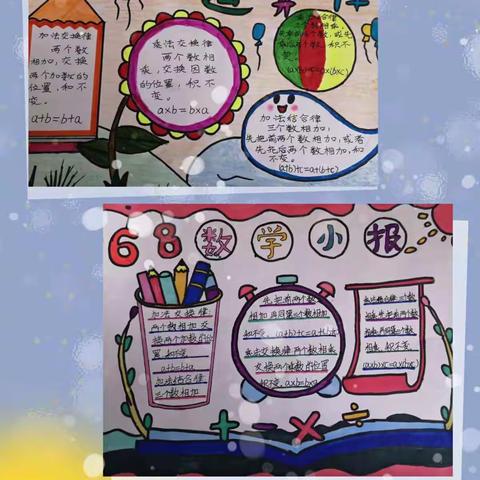 加法交换律
两个数
相加,交换
两个加数的
位置,和不
变。
a+b=b+a
乘法交换律
两个数相
乘,交换因数
的位置,积不
变。
a×b=b×a
三个数相乘
积不
变。
加法结合律
三个数相加,
先把前两个数相加,或者
先把后两个数相加,和
不变。
(a+b)+c=a+(b+c)
68数学小报
加法交换律
两个数相加交
换两个加数的位
置,和不变
a+b=b+a
加法结合律
三个数相加
先把前两个数
相加再同第三个数相加
和不变。(a+b)+c=a+(b+c)
乘法交换律两个数相乘
交换两个因数的位置
积不变。a×b=b×a
乘法结合律三个数
相乘,积不变。
+ − × ÷